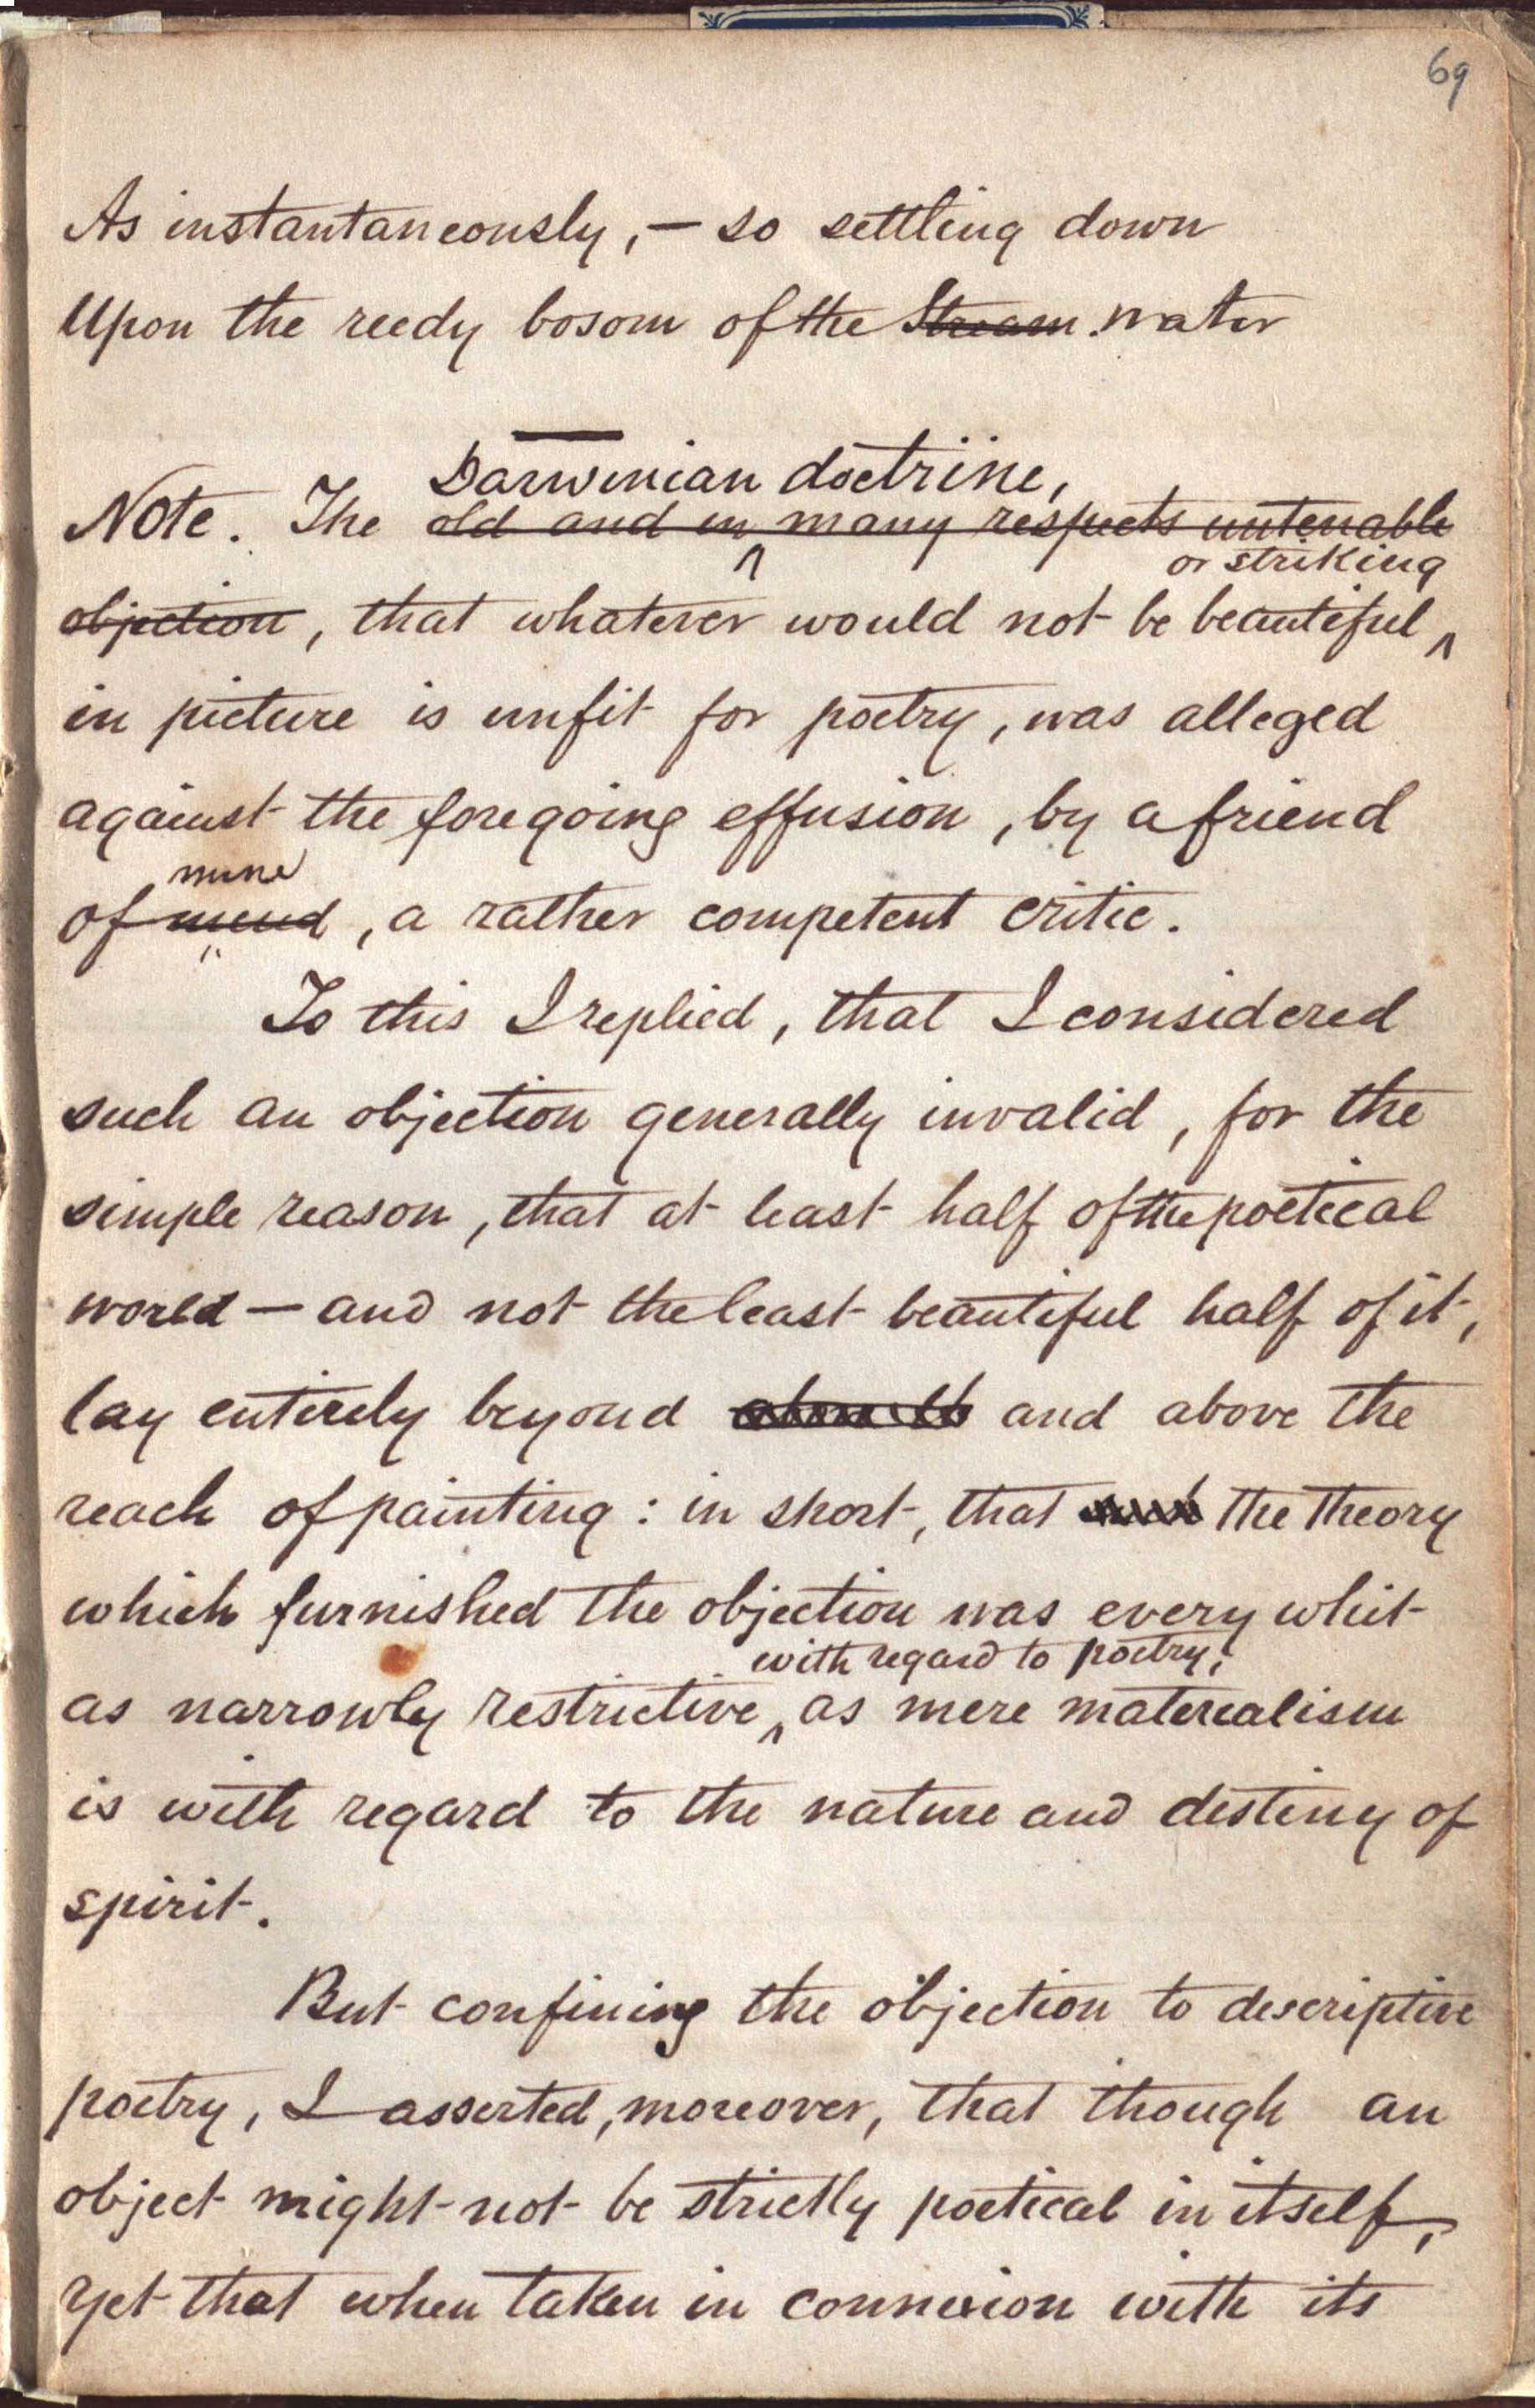 69
As instantaneously, — so settling down
Upon the reedy bosom of the Stream. water
Darwinian doctrine,
Note. The old and in many respects untenable
or striking
objection, that whatever would not be beautiful
in picture is unfit for poetry, was alleged
against the foregoing effusion, by a friend
mine
of mind, a rather competent critic.
To this I replied, that I considered
such an objection generally invalid, for the
simple reason, that at least half of the poetical
world — and not the least beautiful half of it,
lay entirely beyond and above the
reach of painting: in short, that the theory
which furnished the objection was every whit
with regard to poetry,
as narrowly restrictive, as mere materialism
is with regard to the nature and destiny of
spirit.
But confining the objection to descriptive
poetry, I asserted, moreover, that though an
object might not be strictly poetical in itself,
yet that when taken in connexion with its